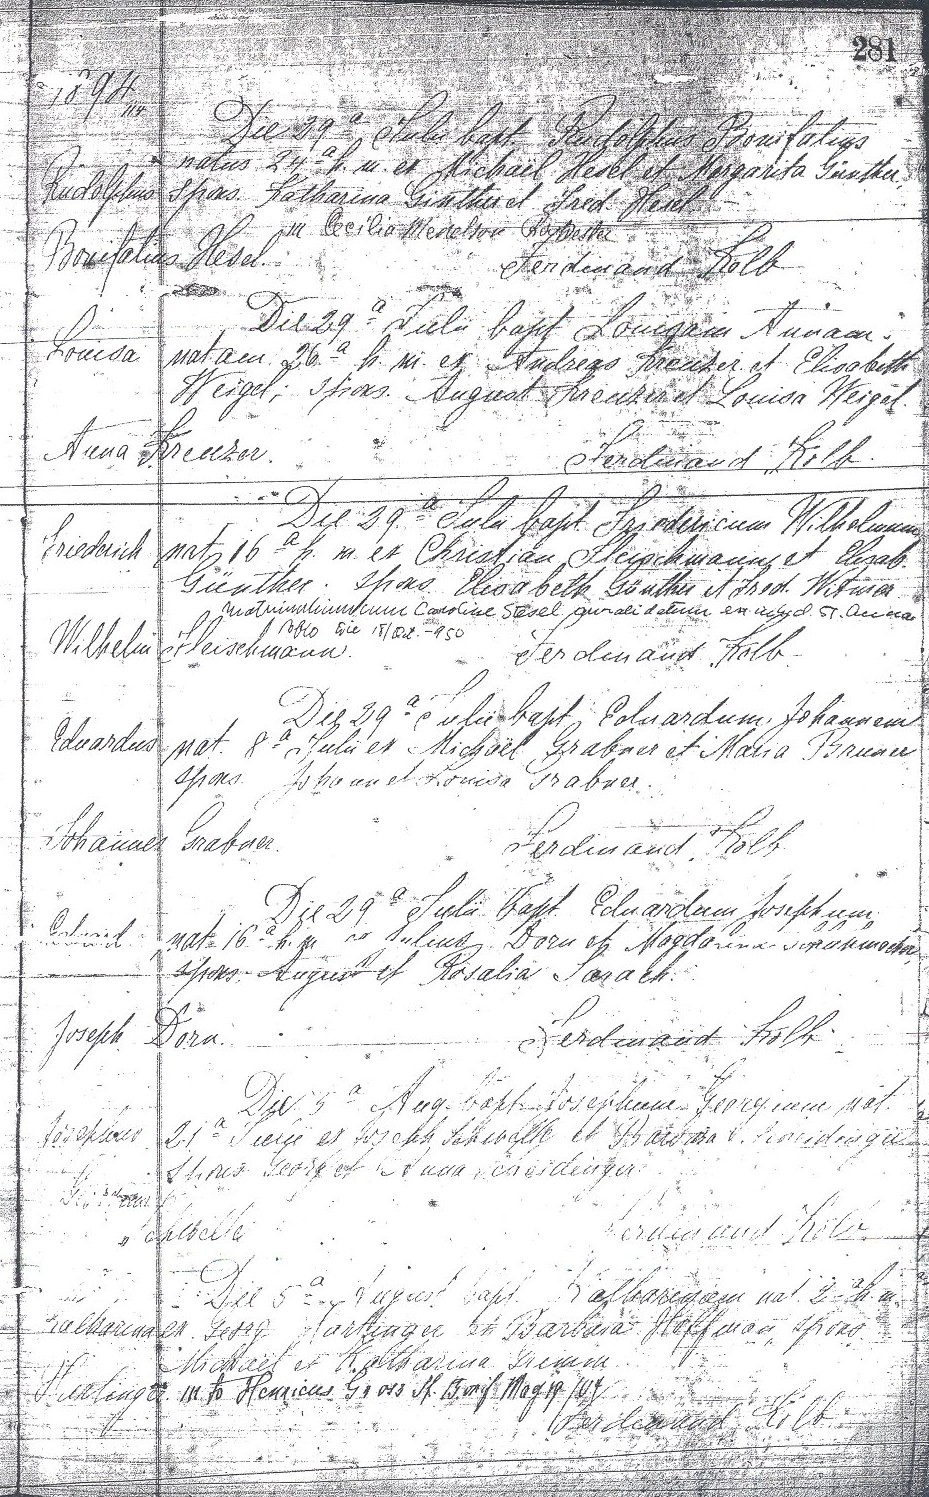 281
1894
Die 29ª Julii bapt. Rudolphus Bonifatius
natus 24ª h. m. ex Michael Hesel et Margarita Günther,
Rudolphus spons. Katharina Günther et Fred. Hesel
m Cecilia Rochester
Bonifatius Hesel. Ferdinand Kolb
Die 29ª Julii bapt Louisam Annam.
Louisa natam 26ª h. m. ex Andreas Kreuzer et Elisabeth
Weigel; spons. August Kreuzer et Louisa Weigel.
Anna Kreuzer. Ferdinand Kolb.
Die 29ª Julii bapt Friedericum Wilhelmum
Friederich nat 16ª h. m. ex Christian Fleischmann et Elisab.
Günther. spons. Elisabeth Günther et Fred. Witmer
Matrimonium cum Caroline Stesel St. Anna
die 18 Oct. -950
Wilhelm Fleischmann. Ferdinand Kolb
Die 29ª Julii bapt Eduardum Johannem
Eduardus nat. 8ª Julii ex Michael Grabner et Maria Brunner
spons. Johann et Louisa Grabner.
Johannes Grabner. Ferdinand Kolb
Die 29ª Julii bapt Eduardum Josephum,
Eduard nat 16ª h. m ex Julius Dorn et Magdalena
spons. August et Rosalia Sarach.
Joseph Dorn. Ferdinand Kolb
Die 5ª Aug. bapt Josephum Georgium nat.
Josephus 21ª Julii ex Joseph et Barbara
Spons Georg et Anna Scheidinger
Ferdinand Kolb.
Die 5ª August bapt Katharinam nat. 2ª h. m.
Katharina ex Georg Hartinger et Barbara Hoffman, spons
Michael et Katharina Gremm
m to Henricus Gross St. Bonif May 19/
Ferdinand Kolb